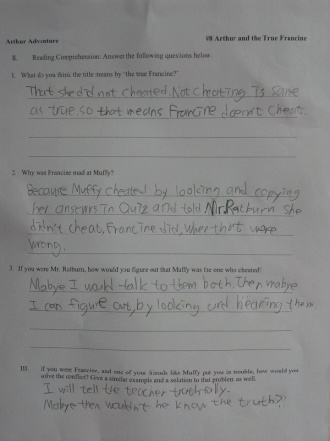 Arthur Adventure #8 Arthur and the True Francine
II. Reading Comprehension: Answer the following questions below.
1. What do you think the title means by "the true Francine?"
That she did not cheated. Not cheating is same
as true so that means Francine doesn't cheat.
2. Why was Francine mad at Muffy?
Because Muffy cheated by looking and copying
her answers in Quiz and told Mr.Ratburn she
didn't cheat, Francine did, when that were
wrong.
3. If you were Mr. Ratburn, how would you figure out that Muffy was the one who cheated?
Mabye I would talk to them both. Then mabye
I can figure out, by looking and hearing them.
III. If you were Francine, and one of your friends like Muffy put you in trouble, how would you
solve the conflict? Give a similar example and a solution to that problem as well.
I will tell the teacher truthfully.
Mabye then wouldn't he know the truth??